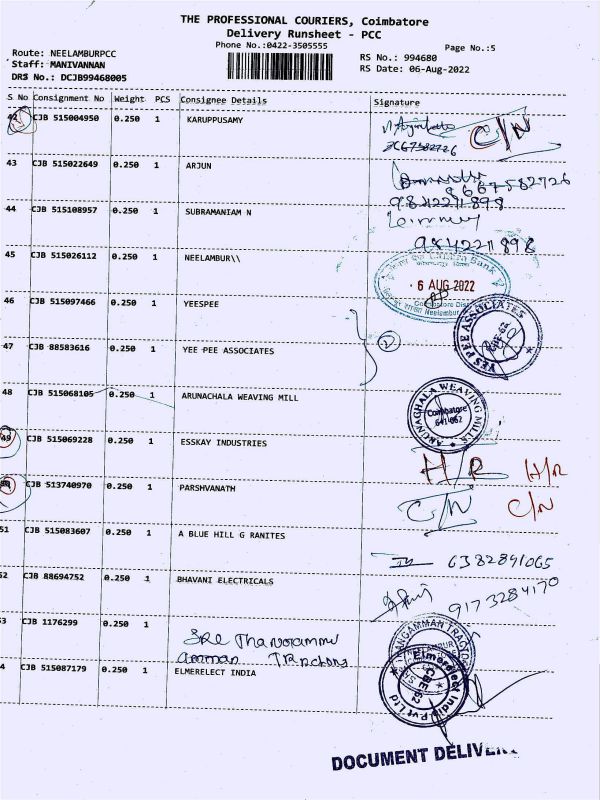 THE PROFESSIONAL COURIERS, Coimbatore
Delivery Runsheet - PCC
Phone No.:0422-3505555
Page No.:5
Route: NEELAMBURPCC
Staff: MANIVANNAN
DRS No.: DCJB99468005
RS No.: 994680
RS Date: 06-Aug-2022
S No Consignment No Weight PCS Consignee Details Signature
42 CJB 515004950 0.250 1 KARUPPUSAMY C/N
43 CJB 515022649 0.250 1 ARJUN
8667582726
9842211898
44 CJB 515108957 0.250 1 SUBRAMANIAM N
9842211898
45 CJB 515026112 0.250 1 NEELAMBUR\\
6 AUG 2022
46 CJB 515097466 0.250 1 YEESPEE
YES PEE ASSOCIATES
47 CJB 88583616 0.250 1 YEE PEE ASSOCIATES
2
48 CJB 515068105 0.250 1 ARUNACHALA WEAVING MILL
ARUNACHALA WEAVING MILLS
Coimbatore
641 062
49 CJB 515069228 0.250 1 ESSKAY INDUSTRIES H/R H/R
CJB 513740970 0.250 1 PARSHVANATH C/N C/N
51 CJB 515083607 0.250 1 A BLUE HILL G RANITES
6382841065
52 CJB 88694752 0.250 1 BHAVANI ELECTRICALS
9173284170
53 CJB 1176299 0.250 1
Amman Tractors
54 CJB 515087179 0.250 1 ELMERELECT INDIA
Elmerelect India Pvt Ltd
CBE 62
DOCUMENT DELIVER